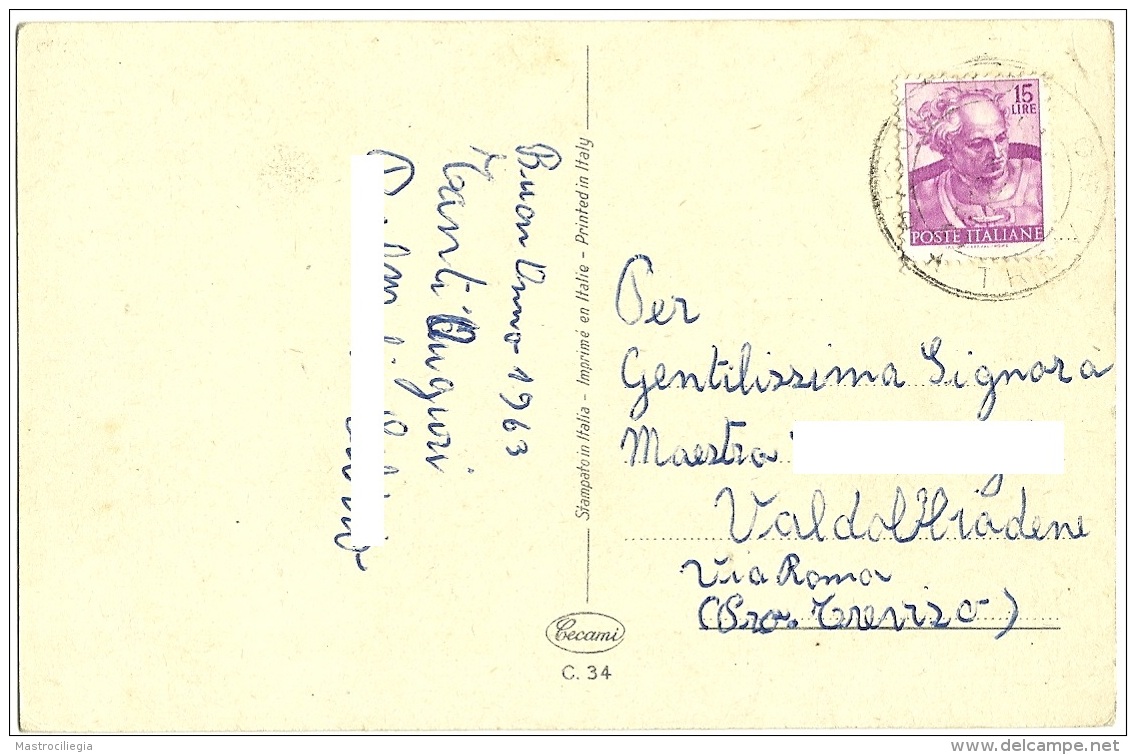 Buon Anno 1963
Tanti Auguri
Stampato in Italia - Imprimé en Italie - Printed in Italy
Cecami
C. 34
15
LIRE
POSTE ITALIANE
Per
Gentilissima Signora
Maestra
Valdobbiadene
Via Roma
(Pro. Treviso)
Mastrociliegia
delcampe.net